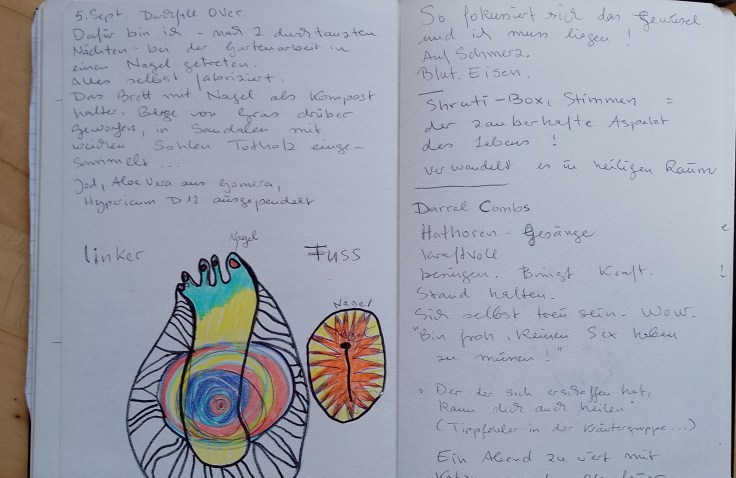 5. Sept. Durchfall Over.
Dafür bin ich - nach 2 durchtanzten
Nächten - bei der Gartenarbeit in
einen Nagel getreten.
Alles selbst fabriziert.
Das Brett mit Nagel als Kompost
halter. Berge von Gras drüber
geworfen, in Sandalen mit
weichen Sohlen Totholz einge-
sammelt ...
Jod, Aloe Vera aus Gomera,
Hypericum D12 ausgependelt
linker
Nagel
Fuss
Nagel
So fokussiert sich das Gewusel
und ich muss liegen!
Auf Schmerz.
Blut. Eisen.
Shruti-Box, Stimmen =
der zauberhafte Aspekt
des Lebens!
verwandelt es in heiligen Raum
Darrel Combs
Hathoren - Gesänge
kraftvoll
besingen. Bringt Kraft.
Stand halten.
Sich selbst treu sein. Wow.
"Bin froh, keinen Sex haben
zu müssen!"
"Der der sich erschaffen hat,
kann dich auch heilen"
(Tippfehler in der Kräutergruppe ...)
Ein Abend zu viert mit